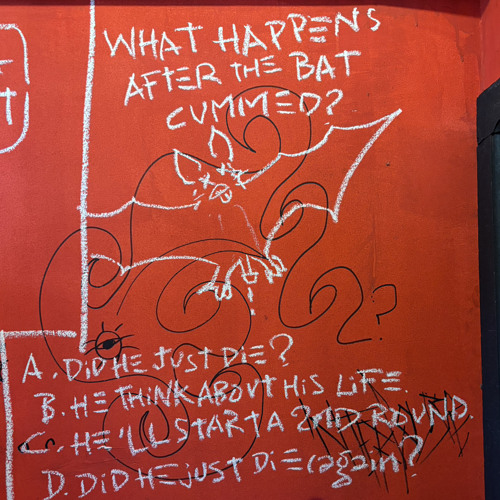 WHAT HAPPENS
AFTER THE BAT
CUMMED?
?
A. DiD HE JUST DiE?
B. HE THINK ABOUT HiS LiFE.
C. HE'LL START A 2ND ROUND.
D. DiD HE JUST DiE again?